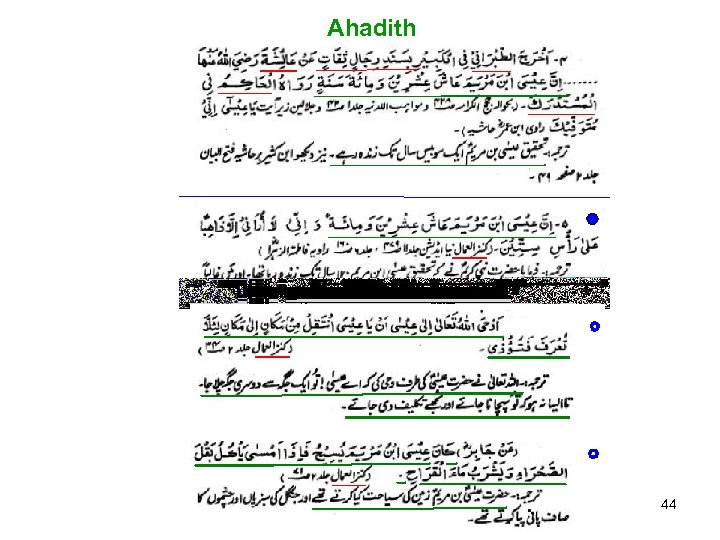 Ahadith
۴۔ اَخْرَجَ الطَّبْرَانِیُّ فِی الْکَبِیْرِ بِسَنَدِ رِجَالٍ ثِقَاتٍ عَنْ عَائِشَۃَ رَضِیَ اللہُ عَنْہَا
....... اِنَّ عِیْسَی ابْنَ مَرْیَمَ عَاشَ عِشْرِیْنَ وَمِائَۃَ سَنَۃٍ رَوَاہُ الْحَاکِمُ فِی
الْمُسْتَدْرَکِ۔ (بحوالہ حجج الکرامہ و مواہب اللدنیہ جلد و جلالین زیر آیت یَا عِیْسٰی اِنِّیْ
مُتَوَفِّیْکَ راوی ابن عمرؓ حاشیہ)۔
ترجمہ: تحقیق عیسٰی بن مریمؑ ایک سو بیس سال تک زندہ رہے۔ نیز دیکھو ابن کثیر بر حاشیہ فتح البیان
جلد ۲ صفحہ ۴۹۔
۵۔ اِنَّ عِیْسَی ابْنَ مَرْیَمَ عَاشَ عِشْرِیْنَ وَمِائَۃً وَ اِنِّیْ لَا اُرَانِیْ اِلَّا ذَاھِبًا
عَلٰی رَأْسِ سِتِّیْنَ۔ (کنز العمال جلد راویہ فاطمۃ الزہراؓ)
ترجمہ: فرمایا حضرت نبی کریمؐ نے کہ تحقیق عیسٰی ابن مریم ۱۲۰ سال تک زندہ رہا تھا۔ اور میں غالباً
اَوْحَی اللہُ تَعَالٰی اِلٰی عِیْسٰی اَنْ یَا عِیْسٰی انْتَقِلْ مِنْ مَکَانٍ اِلٰی مَکَانٍ لِئَلَّا
تُعْرَفَ فَتُؤْذٰی۔ (کنز العمال جلد ۲)
ترجمہ:۔ اللہ تعالٰی نے حضرت عیسٰیؑ کی طرف وحی کی کہ اے عیسٰی! تُو ایک جگہ سے دوسری جگہ چلا جا۔
تا ایسا نہ ہو کہ تُو پہچانا جائے اور تجھے تکلیف دی جائے۔
(عَنْ جَابِرٍ) کَانَ عِیْسَی ابْنُ مَرْیَمَ یَسِیْحُ فَاِذَا اَمْسٰی یَأْکُلُ بَقْلَ
الصَّحْرَاءِ وَیَشْرَبُ مَاءَ الْقَرَاحِ۔ (کنز العمال جلد ۲)
ترجمہ: حضرت عیسٰیؑ بن مریم زمین کی سیاحت کیا کرتے تھے اور جنگل کی سبزیاں اور چشموں کا
صاف پانی پیا کرتے تھے۔
44